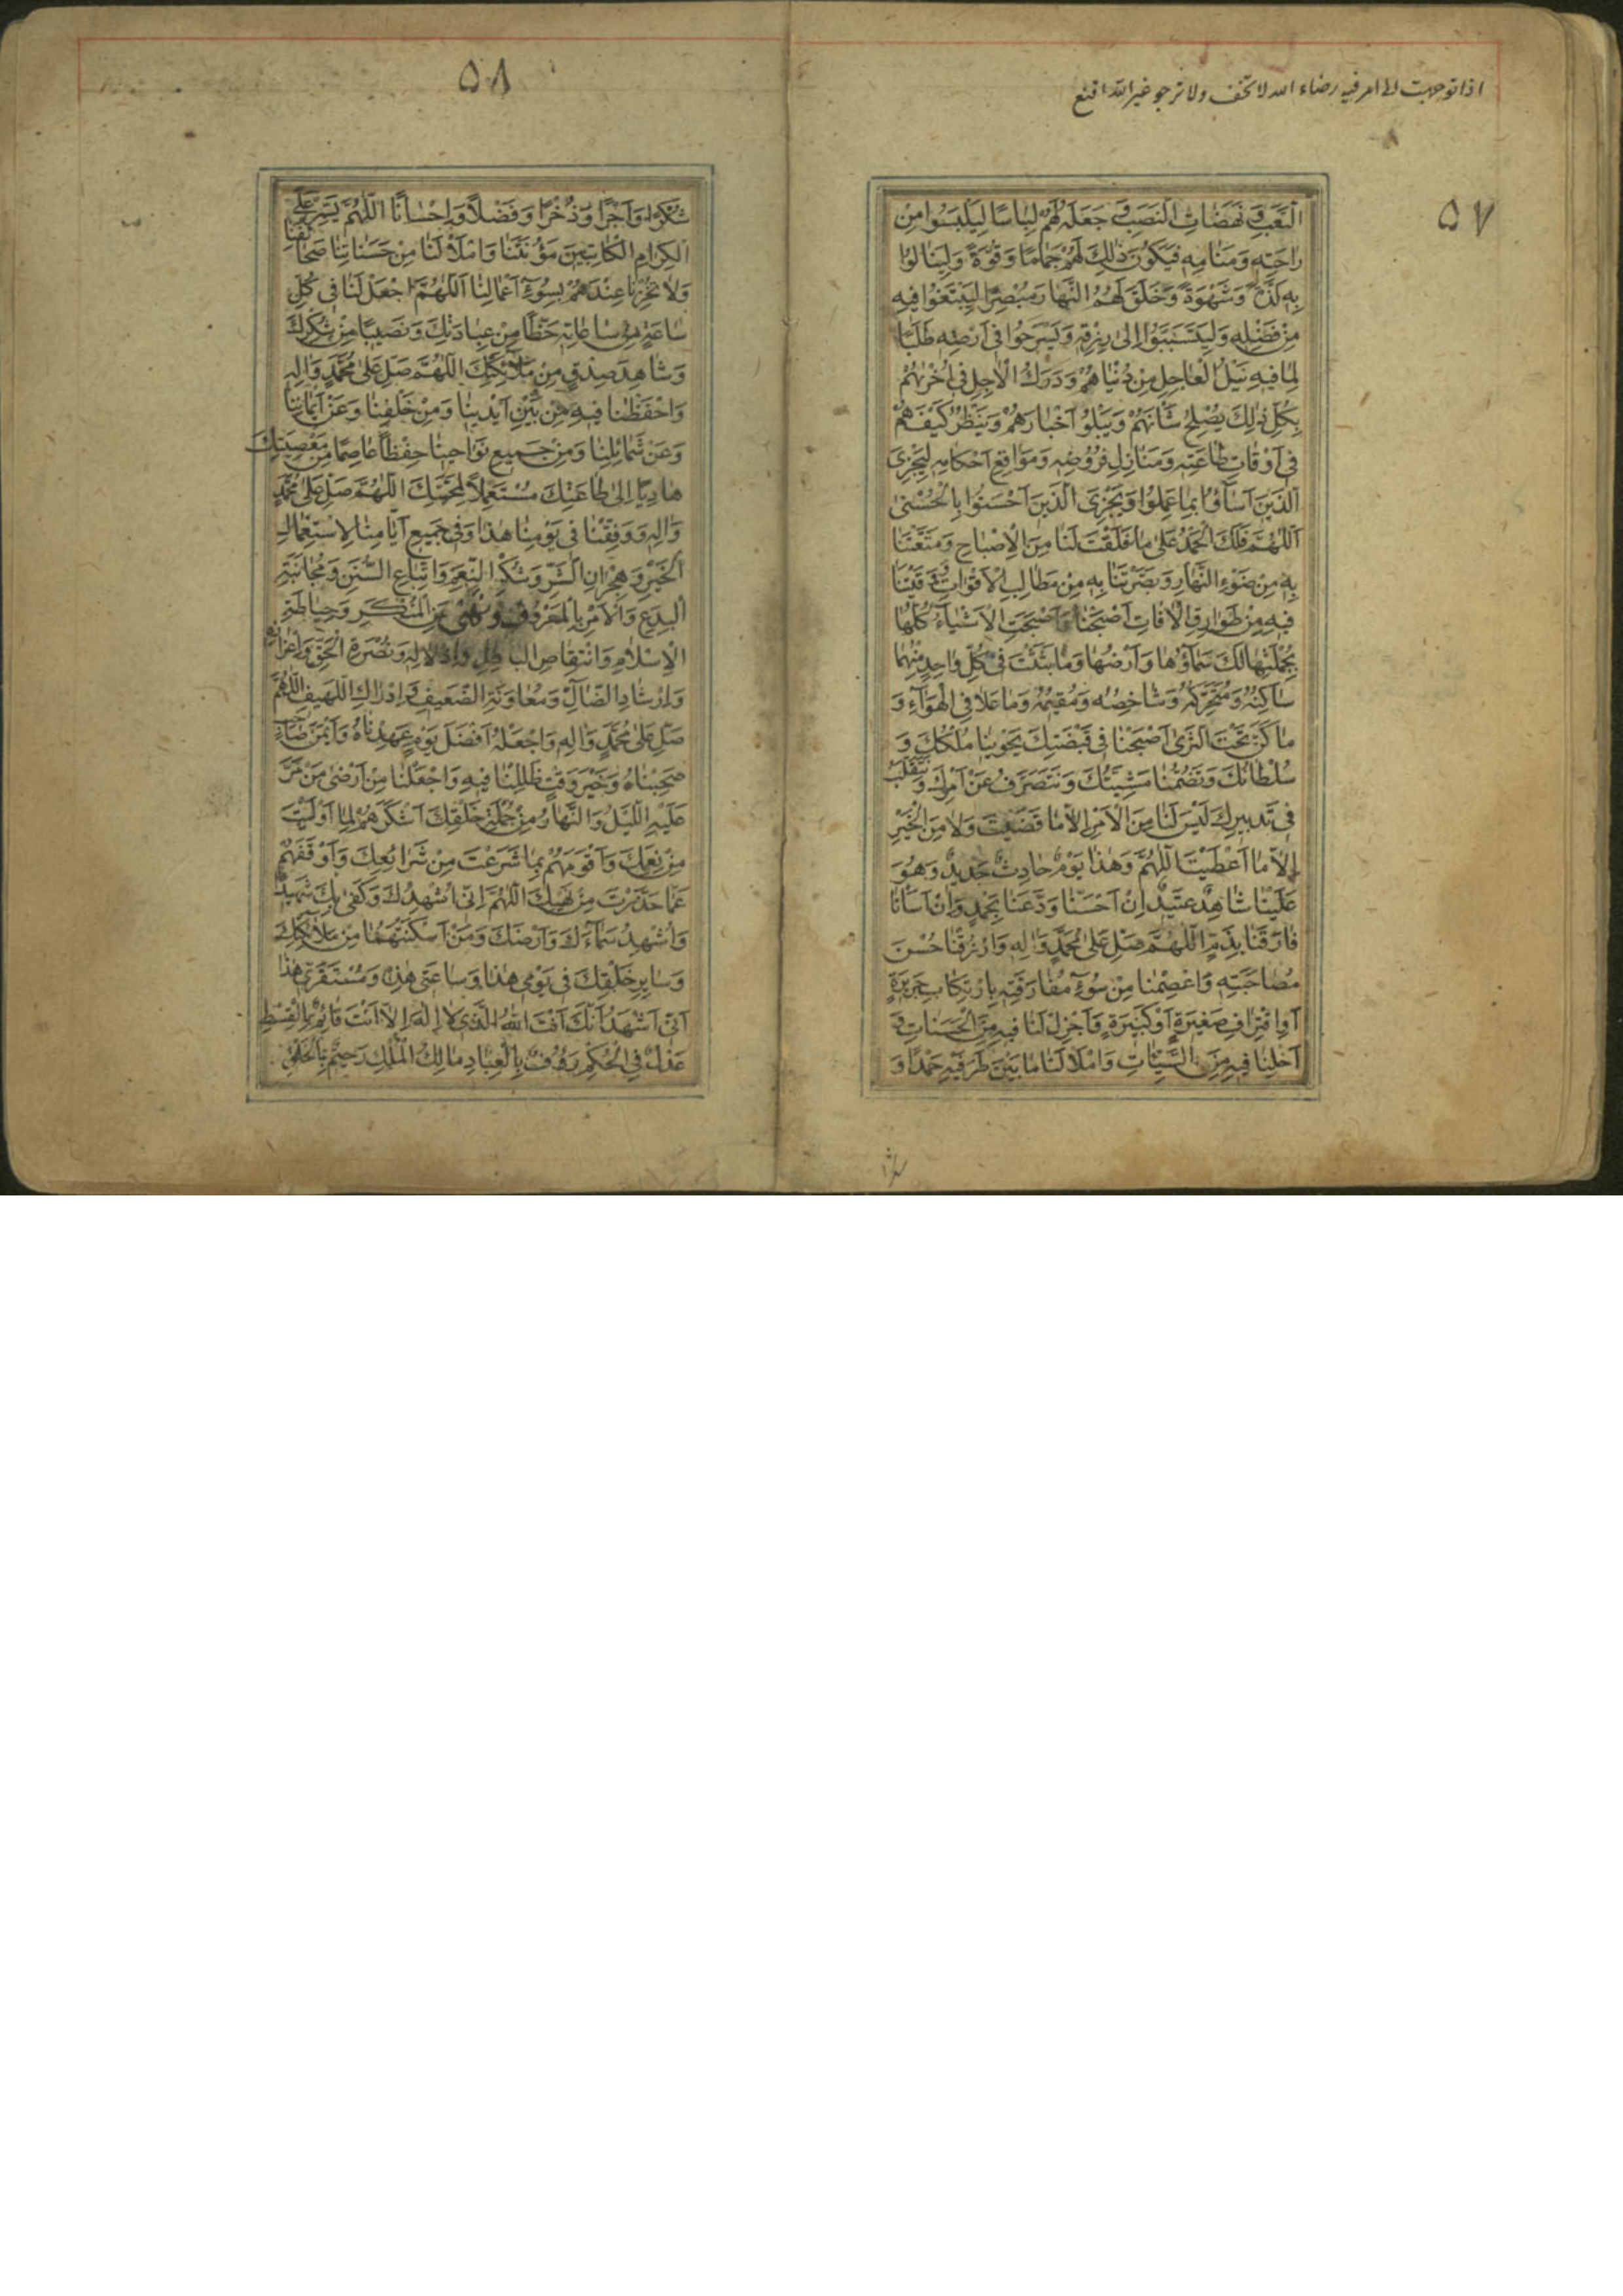 اذا توجهت لامر فيه رضاء الله لا تخف ولا ترجو غير الله اقنع
٥٧
التَّعَبِ وَ نَهَضَاتِ النَّصَبِ وَ جَعَلَهُ لَهُمْ لِبَاسًا لِيَلْبَسُوا مِنْ
رَاحَتِهِ وَمَنَامِهِ فَيَكُونَ ذٰلِكَ لَهُمْ جَمَامًا وَقُوَّةً وَلِيَنَالُوا
بِهِ لَذَّةً وَشَهْوَةً وَخَلَقَ لَهُمُ النَّهَارَ مُبْصِرًا لِيَبْتَغُوا فِيهِ
مِنْ فَضْلِهِ وَلِيَتَسَبَّبُوا اِلىٰ رِزْقِهِ وَيَسْرَحُوا فِى اَرْضِهِ طَلَبًا
لِمَا فِيهِ نَيْلُ الْعَاجِلِ مِنْ دُنْيَاهُمْ وَدَرَكُ الْاٰجِلِ فِى اُخْرٰيهُمْ
بِكُلِّ ذٰلِكَ يُصْلِحُ شَأْنَهُمْ وَيَبْلُوا اَخْبَارَهُمْ وَيَنْظُرُ كَيْفَ هُمْ
فِى اَوْقَاتِ طَاعَتِهِ وَمَنَازِلِ فُرُوضِهِ وَمَوَاقِعِ اَحْكَامِهِ لِيَجْزِىَ
الَّذِينَ اَسَآؤُا بِمَا عَمِلُوا وَيَجْزِىَ الَّذِينَ اَحْسَنُوا بِالْحُسْنىٰ
اَللّٰهُمَّ فَلَكَ الْحَمْدُ عَلىٰ مَا فَلَقْتَ لَنَا مِنَ الْاِصْبَاحِ وَمَتَّعْتَنَا
بِهِ مِنْ ضَوْءِ النَّهَارِ وَبَصَّرْتَنَا بِهِ مِنْ مَطَالِبِ الْاَقْوَاتِ وَ وَقَيْتَنَا
فِيهِ مِنْ طَوَارِقِ الْاٰفَاتِ اَصْبَحْنَا وَاَصْبَحَتِ الْاَشْيَاءُ كُلُّهَا
بِجُمْلَتِهَا لَكَ سَمَاؤُهَا وَاَرْضُهَا وَمَا بَثَثْتَ فِى كُلِّ وَاحِدٍ مِنْهُمَا
سَاكِنُهُ وَمُتَحَرِّكُهُ وَشَاخِصُهُ وَمُقِيمُهُ وَمَا عَلَا فِى الْهَوَآءِ وَ
مَا كَنَّ تَحْتَ الثَّرىٰ اَصْبَحْنَا فِى قَبْضَتِكَ يَحْوِينَا مُلْكُكَ وَ
سُلْطَانُكَ وَتَضُمُّنَا مَشِيَّتُكَ وَنَتَصَرَّفُ عَنْ اَمْرِكَ وَنَتَقَلَّبُ
فِى تَدْبِيرِكَ لَيْسَ لَنَا مِنَ الْاَمْرِ اِلَّا مَا قَضَيْتَ وَلَا مِنَ الْخَيْرِ
اِلَّا مَا اَعْطَيْتَ اَللّٰهُمَّ وَهٰذَا يَوْمٌ حَادِثٌ جَدِيدٌ وَهُوَ
عَلَيْنَا شَاهِدٌ عَتِيدٌ اِنْ اَحْسَنَّا وَدَّعَنَا بِحَمْدٍ وَاِنْ اَسَأْنَا
فَارَقَنَا بِذَمٍّ اَللّٰهُمَّ صَلِّ عَلىٰ مُحَمَّدٍ وَاٰلِهِ وَارْزُقْنَا حُسْنَ
مُصَاحَبَتِهِ وَاعْصِمْنَا مِنْ سُوءِ مُفَارَقَتِهِ بِارْتِكَابِ جَرِيرَةٍ
اَوِ اقْتِرَافِ صَغِيرَةٍ اَوْ كَبِيرَةٍ وَاَجْزِلْ لَنَا فِيهِ مِنَ الْحَسَنَاتِ وَ
اَخْلِنَا فِيهِ مِنَ السَّيِّئَاتِ وَامْلَأْ لَنَا مَا بَيْنَ طَرَفَيْهِ حَمْدًا وَ
٥٨
شُكْرًا وَاَجْرًا وَذُخْرًا وَفَضْلًا وَاِحْسَانًا اَللّٰهُمَّ يَسِّرْ عَلَى
الْكِرَامِ الْكَاتِبِينَ مَؤُنَتَنَا وَامْلَأْ لَنَا مِنْ حَسَنَاتِنَا صَحَائِفَنَا
وَلَا تُخْزِنَا عِنْدَهُمْ بِسُوءِ اَعْمَالِنَا اَللّٰهُمَّ اجْعَلْ لَنَا فِى كُلِّ
سَاعَةٍ مِنْ سَاعَاتِهِ حَظًّا مِنْ عِبَادَتِكَ وَنَصِيبًا مِنْ شُكْرِكَ
وَشَاهِدَ صِدْقٍ مِنْ مَلٰٓئِكَتِكَ اَللّٰهُمَّ صَلِّ عَلىٰ مُحَمَّدٍ وَاٰلِهِ
وَاحْفَظْنَا فِيهِ مِنْ بَيْنِ اَيْدِينَا وَمِنْ خَلْفِنَا وَعَنْ اَيْمَانِنَا
وَعَنْ شَمَائِلِنَا وَمِنْ جَمِيعِ نَوَاحِينَا حِفْظًا عَاصِمًا مِنْ مَعْصِيَتِكَ
هَادِيًا اِلىٰ طَاعَتِكَ مُسْتَعْمِلًا لِمَحَبَّتِكَ اَللّٰهُمَّ صَلِّ عَلىٰ مُحَمَّدٍ
وَاٰلِهِ وَوَفِّقْنَا فِى يَوْمِنَا هٰذَا وَفِى جَمِيعِ اَيَّامِنَا لِاسْتِعْمَالِ
الْخَيْرِ وَهِجْرَانِ الشَّرِّ وَشُكْرِ النِّعَمِ وَاتِّبَاعِ السُّنَنِ وَمُجَانَبَةِ
الْبِدَعِ وَالْاَمْرِ بِالْمَعْرُوفِ وَالنَّهْىِ عَنِ الْمُنْكَرِ وَحِيَاطَةِ
الْاِسْلَامِ وَانْتِقَاصِ الْبَاطِلِ وَاِذْلَالِهِ وَنُصْرَةِ الْحَقِّ وَاِعْزَازِهِ
وَاِرْشَادِ الضَّالِّ وَمُعَاوَنَةِ الضَّعِيفِ وَاِدْرَاكِ اللَّهِيفِ اَللّٰهُمَّ
صَلِّ عَلىٰ مُحَمَّدٍ وَاٰلِهِ وَاجْعَلْهُ اَفْضَلَ يَوْمٍ عَهِدْنَاهُ وَاَيْمَنَ صَاحِبٍ
صَحِبْنَاهُ وَخَيْرَ وَقْتٍ ظَلِلْنَا فِيهِ وَاجْعَلْنَا مِنْ اَرْضىٰ مَنْ مَرَّ
عَلَيْهِ اللَّيْلُ وَالنَّهَارُ مِنْ جُمْلَةِ خَلْقِكَ اَشْكَرَهُمْ لِمَا اَوْلَيْتَ
مِنْ نِعَمِكَ وَاَقْوَمَهُمْ بِمَا شَرَعْتَ مِنْ شَرَائِعِكَ وَاَوْقَفَهُمْ
عَمَّا حَذَّرْتَ مِنْ نَهْيِكَ اَللّٰهُمَّ اِنِّى اُشْهِدُكَ وَكَفىٰ بِكَ شَهِيدًا
وَاُشْهِدُ سَمَاءَكَ وَاَرْضَكَ وَمَنْ اَسْكَنْتَهُمَا مِنْ مَلٰٓئِكَتِكَ
وَسَايِرِ خَلْقِكَ فِى يَوْمِى هٰذَا وَسَاعَتِى هٰذِهِ وَمُسْتَقَرِّى هٰذَا
اَنِّى اَشْهَدُ اَنَّكَ اَنْتَ اللهُ الَّذِى لَا اِلٰهَ اِلَّا اَنْتَ قَائِمٌ بِالْقِسْطِ
عَدْلٌ فِى الْحُكْمِ رَؤُفٌ بِالْعِبَادِ مَالِكُ الْمُلْكِ رَحِيمٌ بِالْخَلْقِ